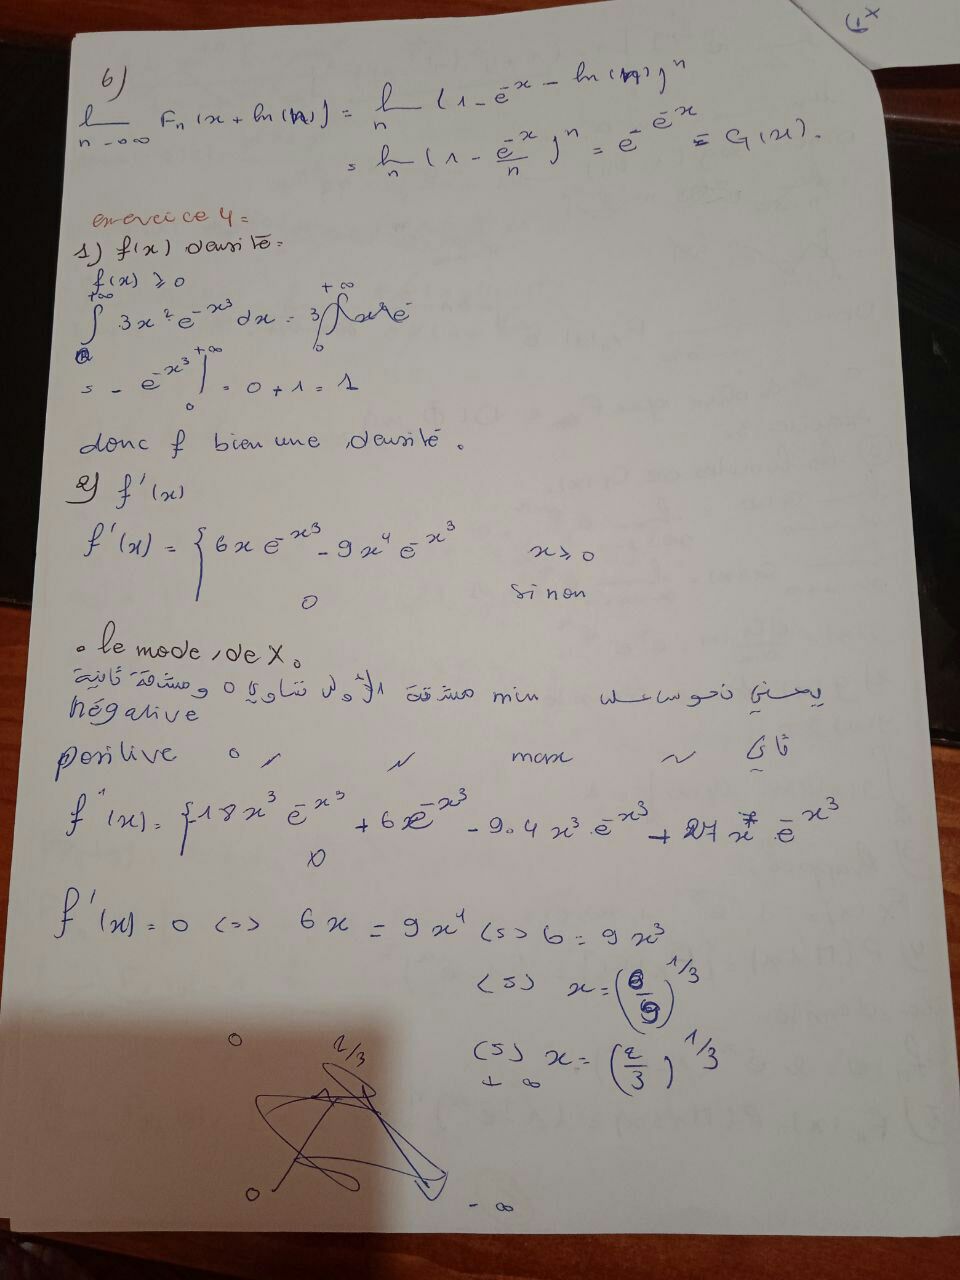 6)
lim n→∞ Fn(x + ln(n)) = lim n (1 - e^{-x - ln(n)})^n
= lim n (1 - e^{-x}/n)^n = e^{-e^{-x}} = G(x).
exercice 4=
1) f(x) densité=
f(x) ≥ 0
∫_0^{+∞} 3x² e^{-x³} dx = 3∫_0^{+∞} x² e^-
= - e^{-x³} |_0^{+∞} = 0 + 1 = 1
donc f bien une densité.
2) f'(x)
f'(x) = { 6x e^{-x³} - 9x⁴ e^{-x³} x ≥ 0
0 sinon
• le mode de X.
يعني نحوس على min مشتقة الأولى تساوي 0 ومشتقة ثانية
négative
positive 0 〃 〃 max ~ ثاني
f''(x) = { 18x³ e^{-x³} + 6e^{-x³} - 9.4x³ e^{-x³} + 27x⁷ e^{-x³}
0
f'(x) = 0 <=> 6x = 9x⁴ <=> 6 = 9x³
<=> x = (6/9)^{1/3}
<=> x = (2/3)^{1/3}
0 2/3 + ∞
0 - ∞